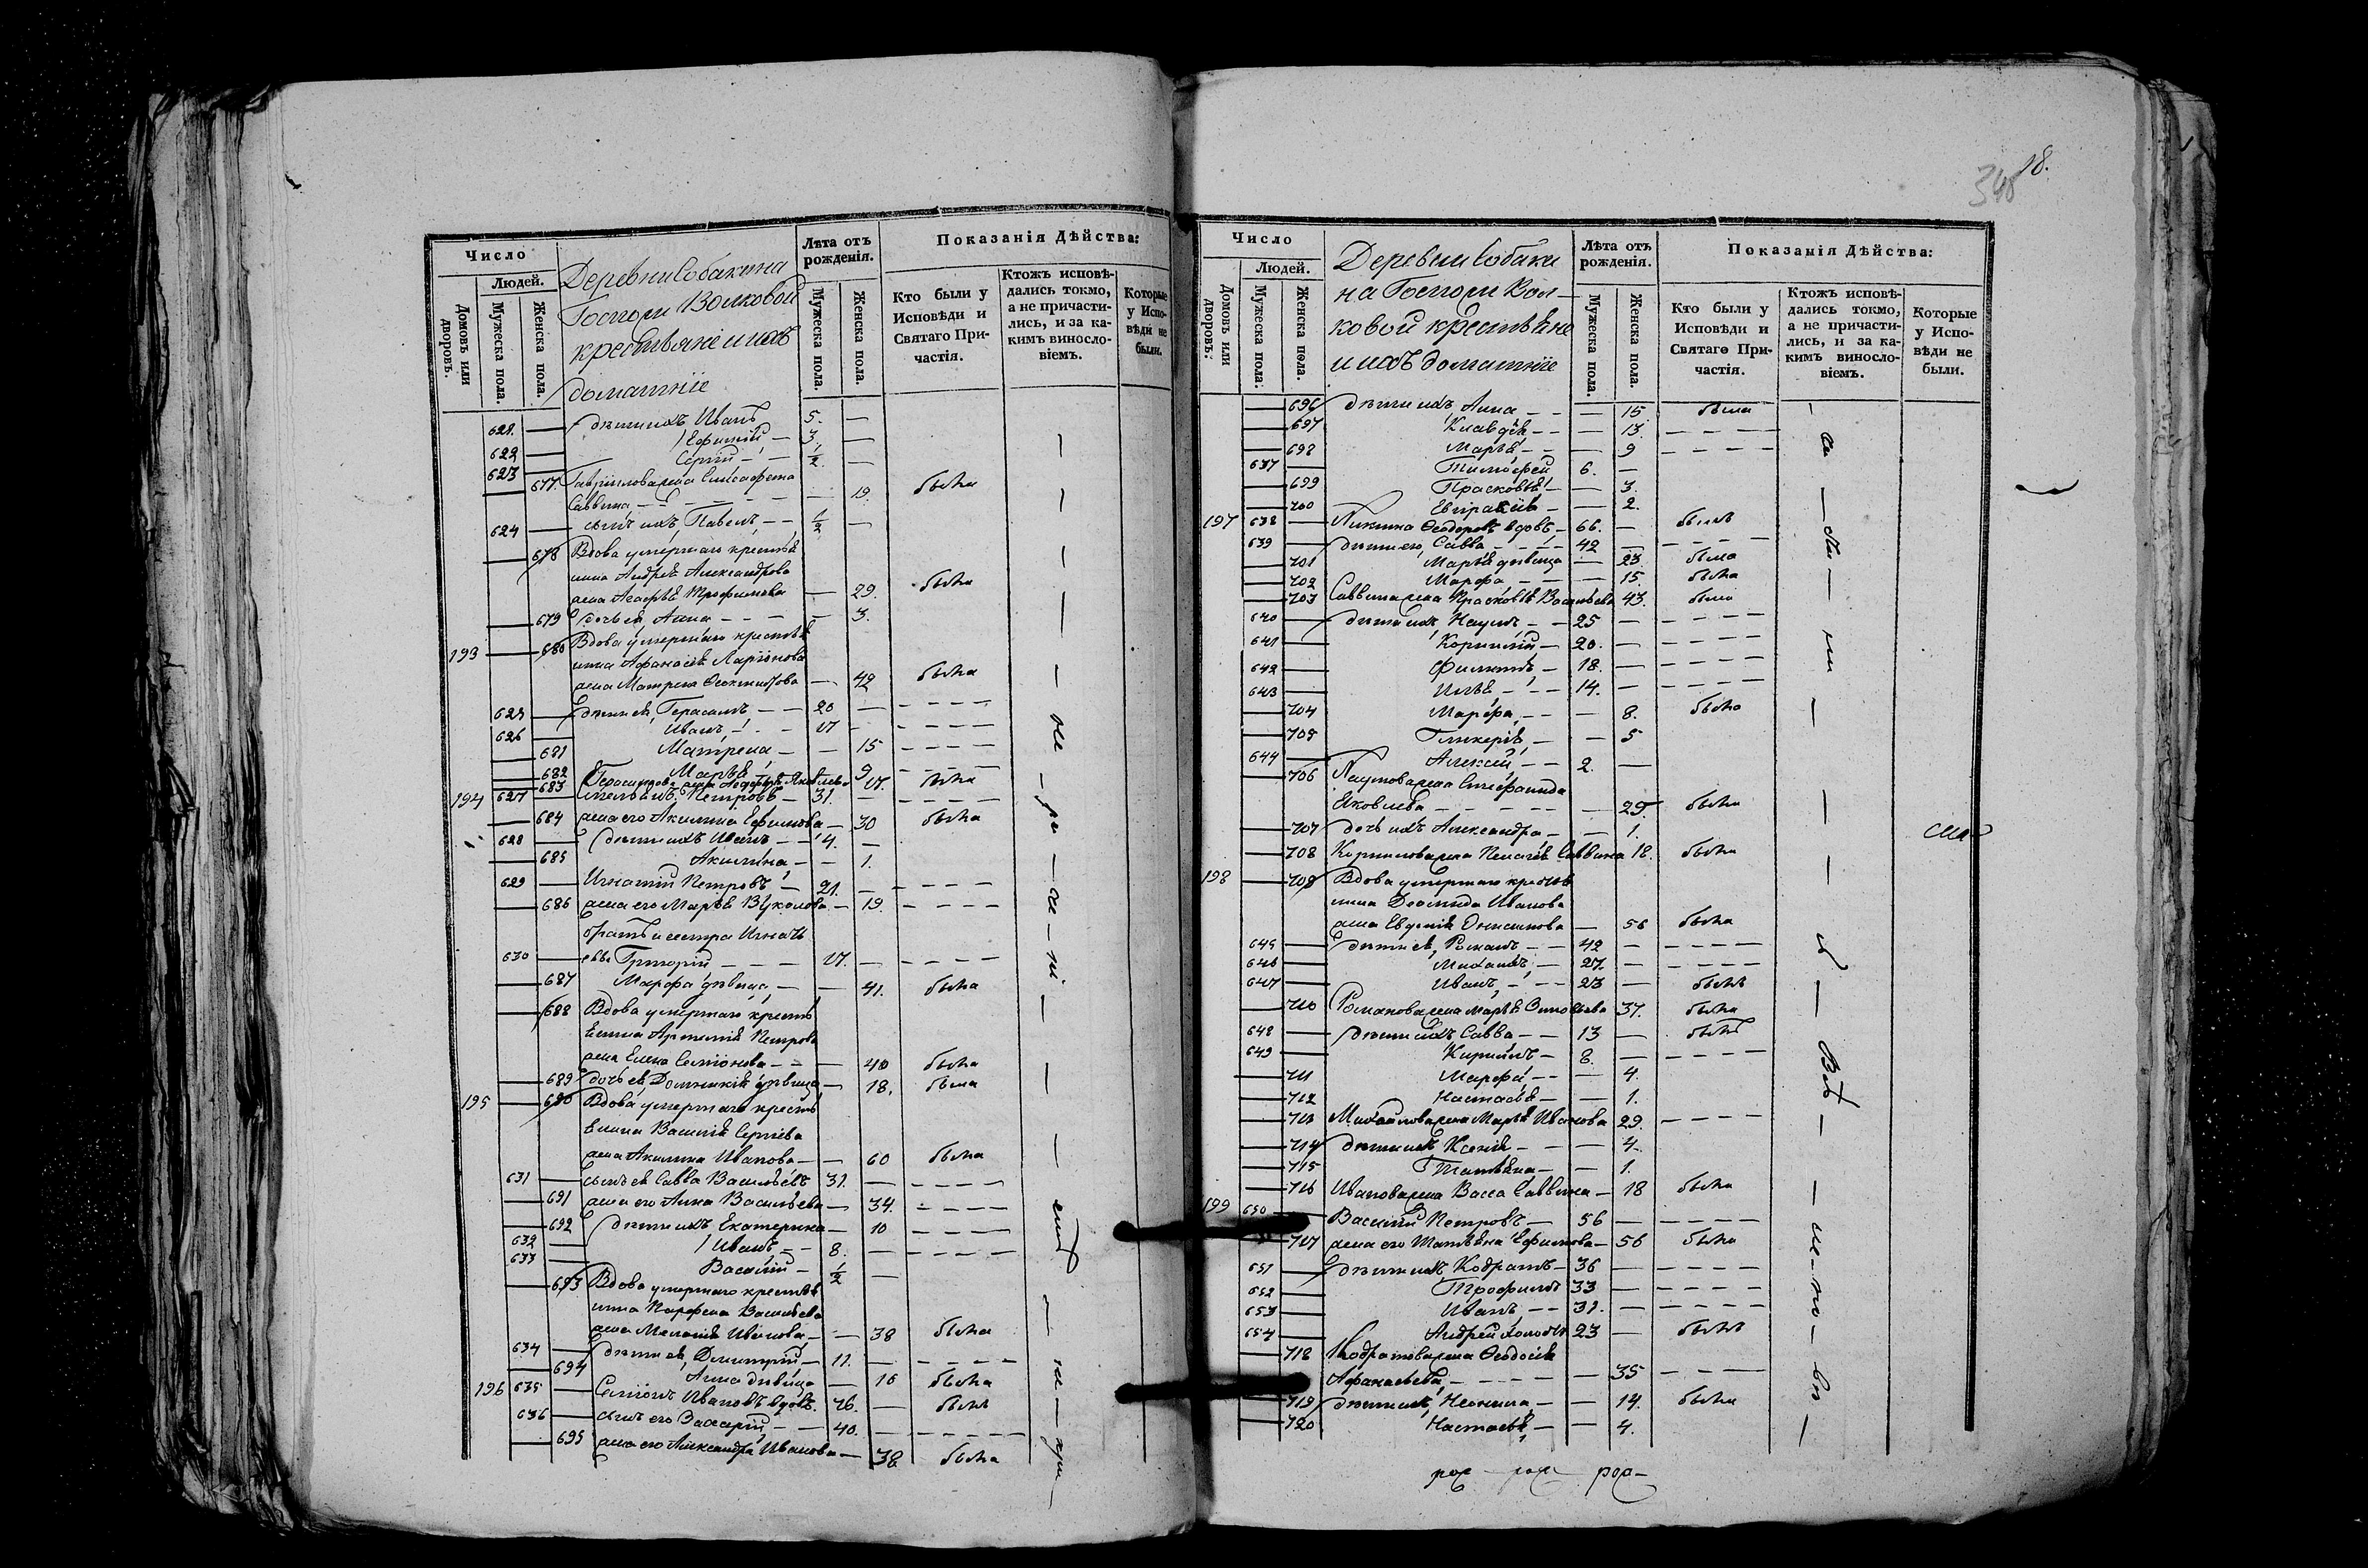 Число
Людей.
Домовъ или дворовъ.
Мужеска пола.
Женска пола.
Деревни Собакина
Госпожи Волковой
крестьяне и ихъ
домашніе
Лѣта отъ рожденія.
Мужеска пола.
Женска пола.
Показанія Дѣйства:
Кто были у Исповѣди и Святаго Причастія.
Ктожъ исповѣдались токмо, а не причастились, и за какимъ винословіемъ.
Которые у Исповѣди не были.
621. дѣти ихъ Иванъ 5. —
622 Ефимій — 3. —
623 Сергій — 1/2 —
677. Гавріилова жена
Саввина — 19. была
624 сынъ ихъ Павелъ — 1/2 —
678 Вдова умершаго крестья
нина Андрея Александрова
жена Агафья Трофимова — 29. была
679 дочь ея Анна — 3.
193 680 Вдова умершаго крестья
нина Афанасія Ларіонова
жена Матрена — 42 была
625 дѣти ея, Герасимъ — 20 —
626 Иванъ — 17 —
681 Матрена — 15
682 Марья 9
683 Герасимова жена Яковлева 17. была
194 627 Петровъ — 31. —
684 жена его Акилина Ефимова — 30 была
628 дѣти ихъ Иванъ — 4. —
685 Акилина — 1.
629 Игнатій Петровъ — 21. —
686 жена его Марья Вуколова — 19.
братъ и сестра Игнать
евы Григорій — 17. —
687 Марфа дѣвица — 41. была
688 Вдова умершаго кресть
янина Артемія Петрова
жена Елена Семіонова — 40 была
689 дочь ея, Домникія дѣвица — 18. была
195 690 Вдова умершаго кресть
янина Василія Сергіева
жена Акилина Иванова — 60 была
631 сынъ ея Савва Васильевъ 31. —
691 жена его Анна Васильева — 34.
692 дѣти ихъ Екатерина — 10
632 Иванъ — 8. —
633 Василій — 1/2 —
693 Вдова умершаго крестья
нина Парфена Васильева
жена Меланія Иванова — 38 была
634 дѣти ея, Димитрій — 11. —
694 Анна дѣвица — 16 была
196 635 Семіонъ Ивановъ вдовъ. 76. — былъ
636 сынъ его — 40. —
695 жена его Александра Иванова — 38 была
18.
Число
Людей.
Домовъ или дворовъ.
Мужеска пола.
Женска пола.
Деревни Собаки
на Госпожи Вол
ковой крестьяне
и ихъ домашніе
Лѣта отъ рожденія.
Мужеска пола.
Женска пола.
Показанія Дѣйства:
Кто были у Исповѣди и Святаго Причастія.
Ктожъ исповѣдались токмо, а не причастились, и за какимъ винословіемъ.
Которые у Исповѣди не были.
696 дѣти ихъ Анна — 15 была
697 Клавдія — 13.
698 Марья — 9
637 Тимофей 6. —
699 Прасковья — 3.
700 Евпраксія — 2.
197 638 Никита Ѳеодоровъ вдовъ — 66. — былъ
639 дѣти его, Савва — 42 —
701 Марья дѣвица — 23. была
702 Марфа — 15. была
703 Саввина жена Прасковья Васильева 43. была
640 дѣти ихъ, Наумъ — 25 —
641 Корнилій — 20. —
642 Филиппъ — 18. —
643 Илья — 14. —
704 Марфа — 8. была
705 Гликерія — 5
644 Алексій — 2. —
706 Наумова жена
Яковлева — 25. была
707 дочь ихъ Александра — 1.
708 Корнилова жена Пелагія Саввина 18. была
198 709 Вдова умершаго крестья
нина Иванова
жена Евдокія — 56 была
645 дѣти ея, Романъ — 42 —
646 Михаилъ — 27. —
647 Иванъ — 23 — былъ
710 Романова жена Марья 37. была
648 дѣти ихъ Савва — 13 — былъ
649 Кириллъ — 8. —
711 Марфа — 4.
712 Настасья — 1.
713 Михайлова жена Марья Иванова 29.
714 дѣти ихъ Ксенія — 4.
715 Татьяна — 1.
716 Иванова жена Васса Саввина — 18 была
199 650 Василій Петровъ — 56 —
717 жена его Татьяна Ефимова — 56 была
651 дѣти ихъ Кодратъ — 36 —
652 Трофимъ 33 —
653 Иванъ — 31. —
654 Андрей холостъ 23 — былъ
718 Кодратова жена Ѳеодосія
Афанасьева — 35
719 дѣти ихъ, Неонила — 14. была
720 Настасья — 4.